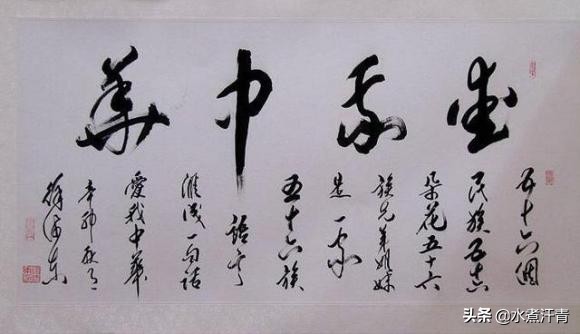 愛我中華
五十六個
民族五十六
朵花五十六
族兄弟姐妹
是一家
五十六族
語言
匯成一句話
愛我中華
辛卯
头条 @水煮汗青